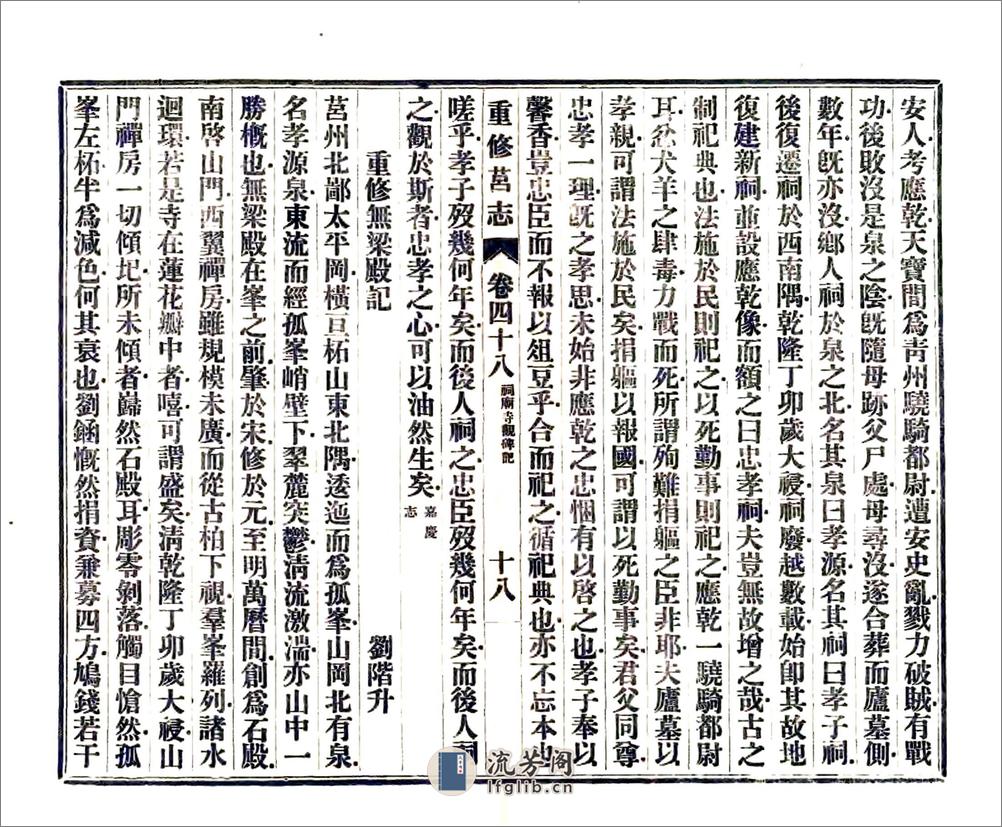 安人考應乾天寶間爲靑州驍騎都尉遭安史亂戮力破賊有戰
功後敗沒是泉之陰旣隨母跡父尸處母尋沒遂合葬而廬墓側
數年旣亦沒鄉人祠於泉之北名其泉曰孝源名其祠曰孝子祠
後復遷祠於西南隅乾隆丁卯歲大祲祠廢越數載始卽其故地
復建新祠並設應乾像而額之曰忠孝祠夫豈無故增之哉古之
制祀典也法施於民則祀之以死勤事則祀之應乾一驍騎都尉
耳忿犬羊之肆毒力戰而死所謂殉難捐軀之臣非耶夫廬墓以
孝親可謂法施於民矣捐軀以報國可謂以死勤事矣君父同尊
忠孝一理旣之孝思未始非應乾之忠悃有以啓之也孝子奉以
馨香豈忠臣而不報以俎豆乎合而祀之循祀典也亦不忘本也
重修莒志 卷四十八 祠廟寺觀碑記 十八
嗟乎孝子歿幾何年矣而後人祠之忠臣歿幾何年矣而後人祠
之觀於斯者忠孝之心可以油然生矣 嘉慶志
重修無梁殿記 劉階升
莒州北鄙太平岡橫亘柘山東北隅逶迤而爲孤峯山岡北有泉
名孝源泉東流而經孤峯峭壁下翠麓突鬱淸流激湍亦山中一
勝槪也無梁殿在峯之前肇於宋修於元至明萬曆間創爲石殿
南啓山門西翼禪房雖規模未廣而從古柏下視羣峯羅列諸水
迴環若是寺在蓮花瓣中者嘻可謂盛矣淸乾隆丁卯歲大祲山
門禪房一切傾圮所未傾者巋然石殿耳彫零剝落觸目愴然孤
峯左柘半爲減色何其衰也劉錮慨然捐資兼募四方鳩錢若干
流芳阁
lfglib.cn